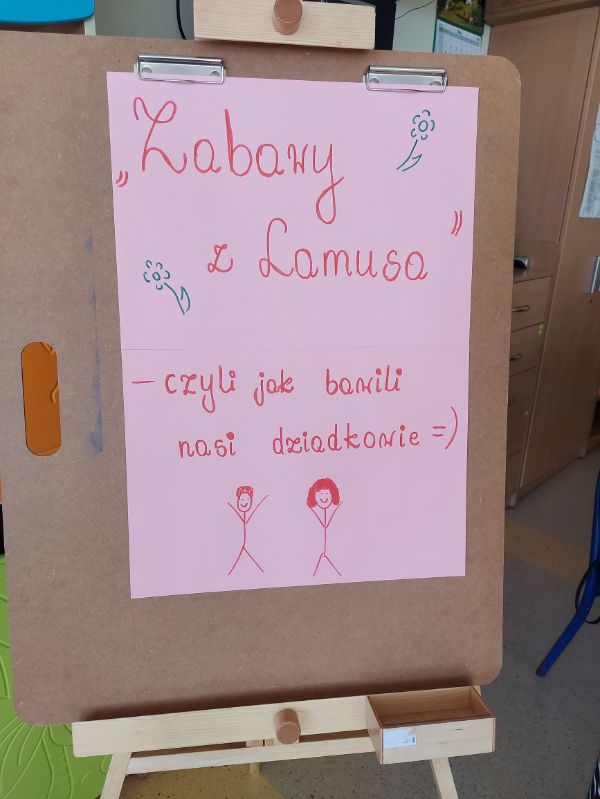 „Zabawy
z Lamusa”
– czyli jak bawili
nasi dziadkowie =)